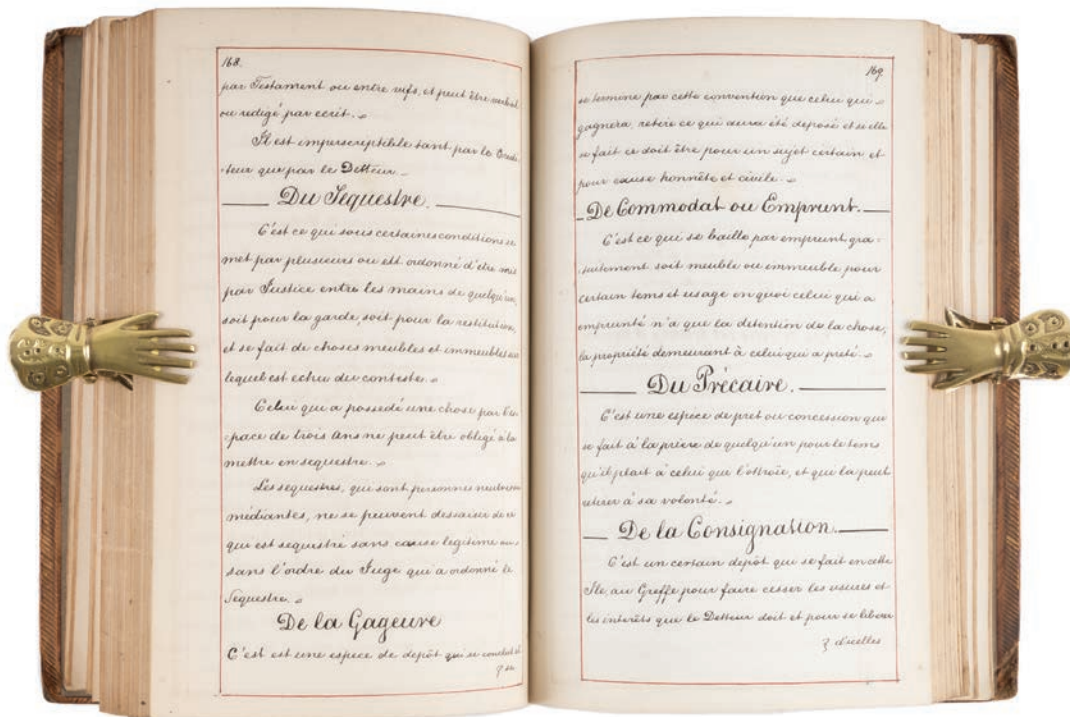 168.
par Testament ou entre vifs, et peut être verbal
ou redigé par ecrit.
Il est imperscriptible tant par le Credi-
-teur que par le Detteur.
Du Sequestre.
C'est ce qui sous certaines conditions se
met par plusieurs ou est ordonné d'etre mis
par Justice entre les mains de quelqu'un,
soit pour la garde, soit pour la restitution,
et se fait de choses meubles et immeubles
lequel est echu du conteste.
Celui qui a possedé une chose par l'es-
pace de trois Ans ne peut être obligé à la
mettre en sequestre.
Les sequestres, qui sont personnes neutres
médiantes, ne se peuvent dessaisir de ce
qui est sequestré sans cause legitime
sans l'ordre du Juge qui a ordonné le
Sequestre.
De la Gageure
C'est est une espece de depôt qui se conclut et
se
169
se termine par cette convention que celui qui
gagnera, retire ce qui aura été deposé et si elle
se fait ce doit être pour un sujet certain et
pour cause honnête et civile.
De Commodat ou Emprunt.
C'est ce qui se baille par emprunt gra-
-tuitement soit meuble ou immeuble pour
certain tems et usage en quoi celui qui a
emprunté n'a que la detention de la chose,
la propriété demeurant à celui qui a preté.
Du Précaire.
C'est une espece de pret ou concession que
se fait à la prière de quelqu'un pour le tems
qu'il plait à celui que l'ottroie, et que la peut
retirer à sa volonté.
De la Consignation.
C'est un certain depôt qui se fait en cette
Ile, au Greffe pour faire cesser les usures et
les interêts que le Detteur doit et pour se liberer
d'icelles